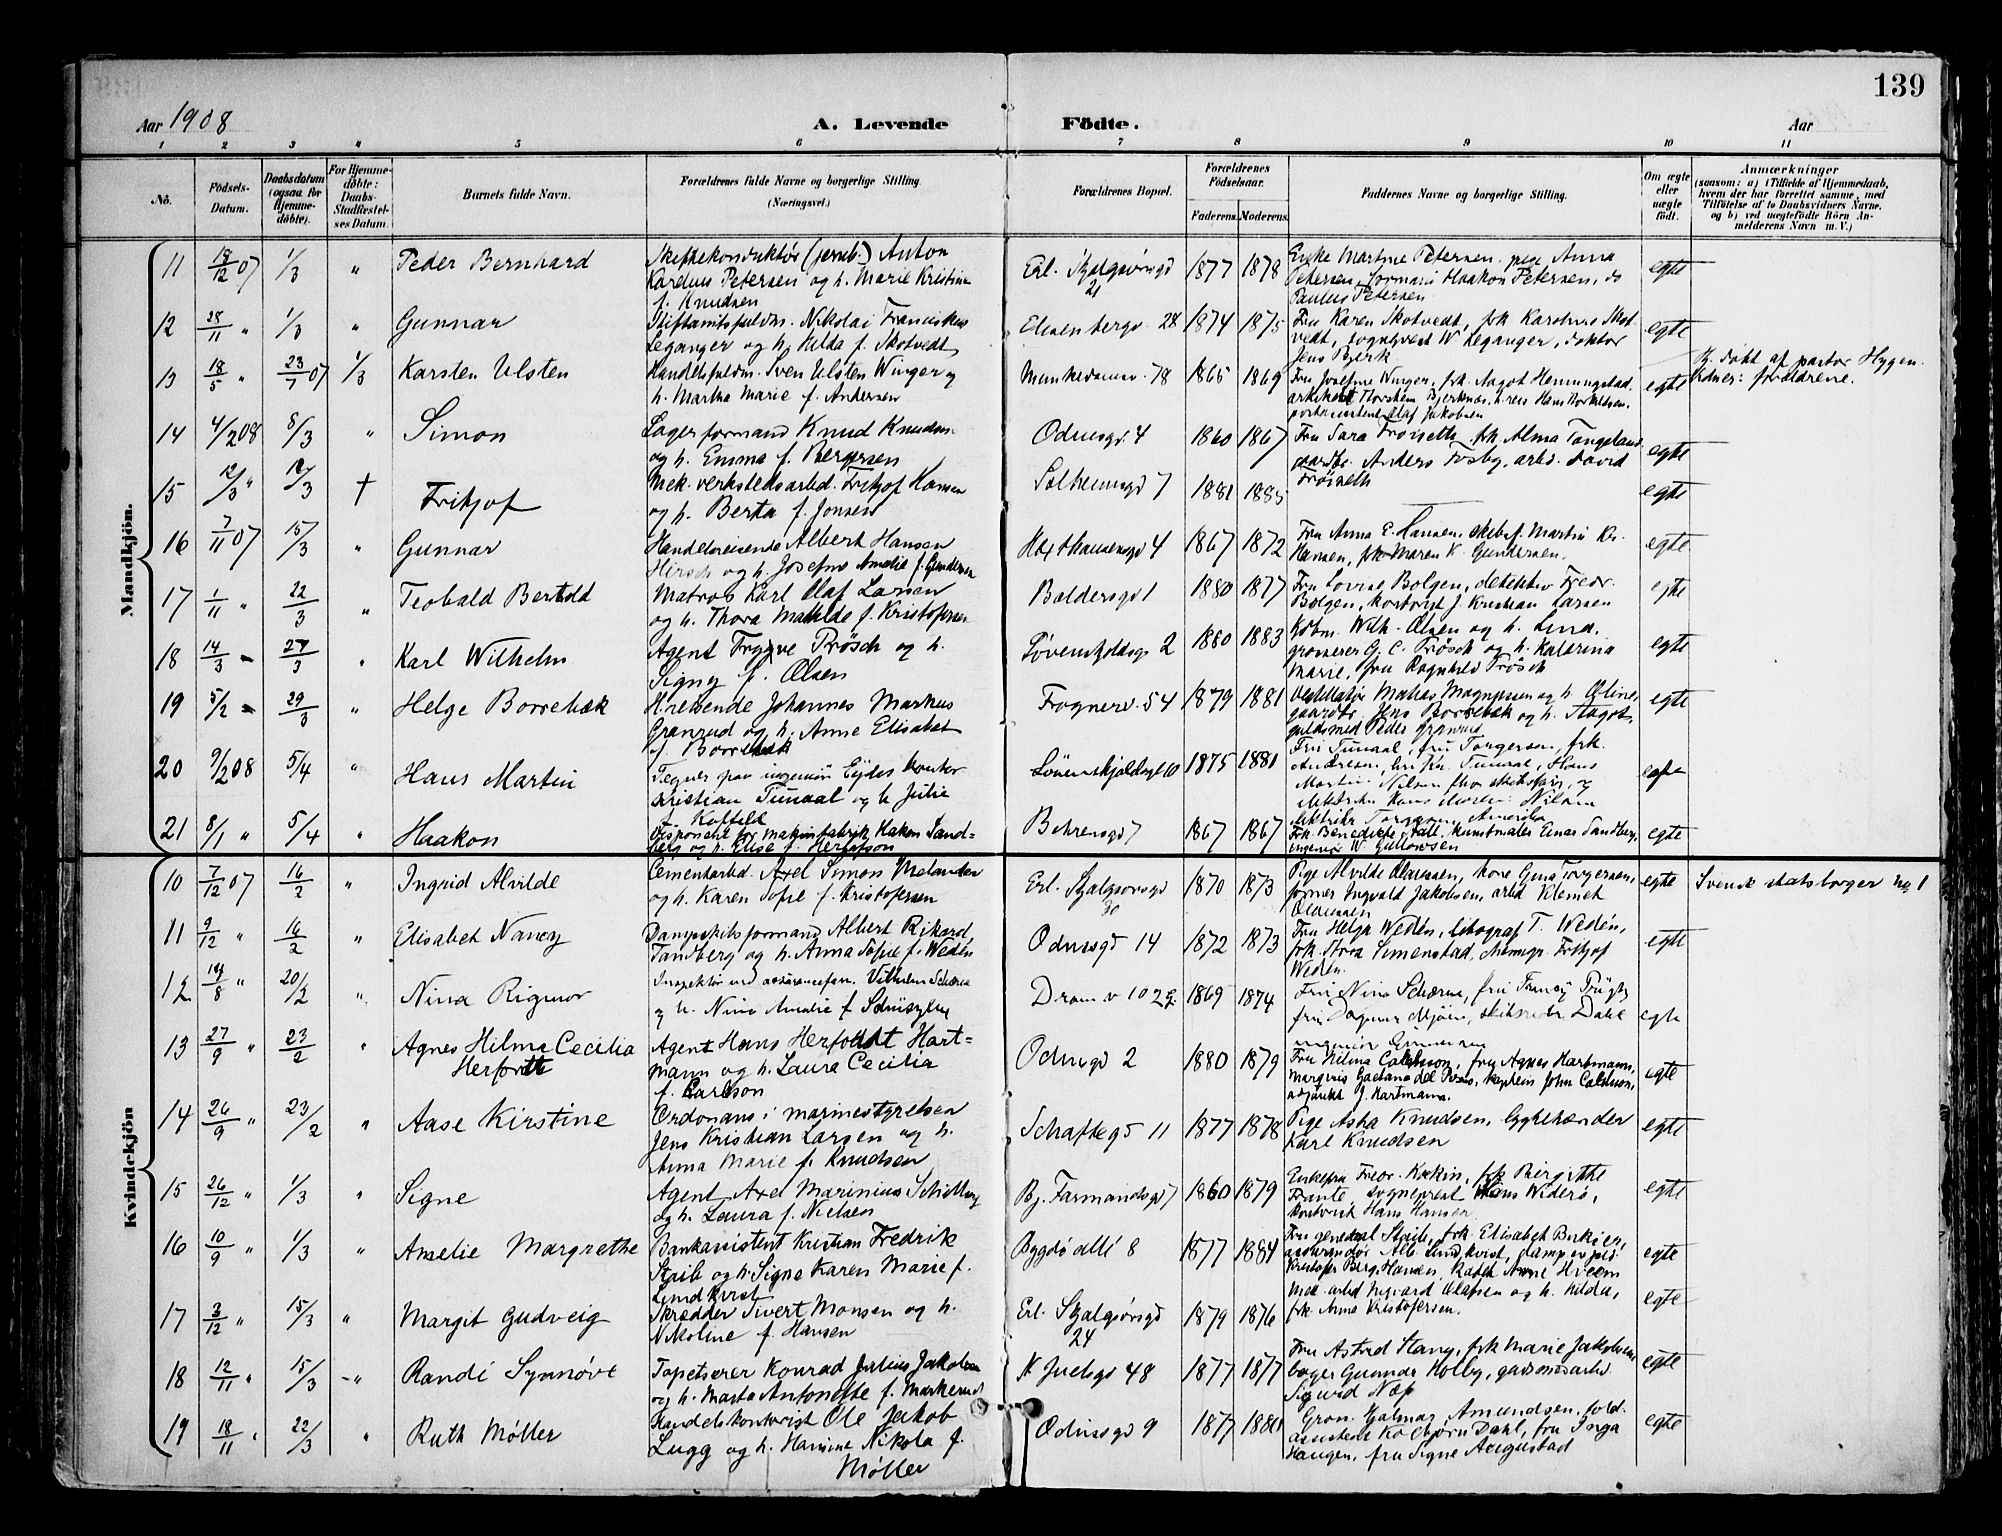 139
Aar 1908
A. Levende Födte.
Aar
1 2 3 4 5 6 7 8 9 10 11
No.
Födsels-Datum.
Daabsdatum (ogsaa for Hjemmedöbte).
For Hjemmedöbte: Daabs-Stadfæstelses Datum.
Barnets fulde Navn.
Forældrenes fulde Navne og borgerlige Stilling.
(Næringsvei.)
Forældrenes Bopæl.
Forældrenes Födselsaar.
Faderens. Moderens.
Faddernes Navne og borgerlige Stilling.
Om ægte eller uægte födt.
Anmærkninger
(saasom: a) i Tilfælde af Hjemmedaab, hvem der har forrettet samme, med Tilföielse af to Daabsvidners Navne, og b) ved uægtefödte Börn Anmelderens Navn m. V.)
Mandkjön.
11 18/12 07 1/3 " Peder Bernhard
(jernb.) Anton
Petersen og h. Marie Kristine
f. Knudsen
Erl. Skjalgsønsgd 21 1877 1878
Enke Martine Petersen, pige Anna
Petersen, formand Haakon Petersen, do
Paulus Petersen
egte
12 28/11 " 1/3 " Gunnar
Nikolai Franciskus
Leganger og h. Hilda f. Skotvedt
Eilenbergv. 28 1874 1875
Fru Karen Skotvedt, frk Karoline Skotvedt, W. Leganger, doktor
Jens Bjerk
egte
13 18/5 " 23/7 07 1/3 Karsten Ulsten
Handelsfuldm. Sven Ulsten Winger og
h. Martha Marie f. Andersen
Munkedamsv. 78 1865 1869
Fru Josefine Winger, frk. Aagot Henningstad,
Olaf Jakobsen
egte
Hj. døbt af pastor Hygen.
Vidner: forældrene.
14 4/2 08 8/3 " Simon
Lagerformand Knud Knudsen
og h. Emma f. Bergersen
Odinsgd 4 1860 1867
Fru Sara Frøiseth, frk Alma Tangeland,
gaardbr. Anders Fosby, arbd. David
Frøiseth
egte
15 12/3 " 12/3 † Fritjof
Mek. verkstedsarbd. Fritjof Hansen
og h. Berta f. Jonsen
Solheimsgd 7 1881 1885
egte
16 7/11 07 15/3 " Gunnar
Handelsreisende Albert Hansen
Hirsch og h. Josefine Amalie f. Gundersen
Holthausensgd 4 1867 1872
Fru Anna E. Hansen, skibsf. Martin Kr.
Hansen, frk Maren K. Gundersen.
egte
17 1/11 " 22/3 " Teobald Bertold
Matros Karl Olaf Larsen
og h. Thora Matilde f. Kristofersen
Baldersgd 1 1880 1877
Fru Lovise Bolgen, detektiv Fredr.
Bolgen, kontorist J. Kristian Larsen
egte
18 14/3 " 27/3 " Karl Wilhelm
Agent Trygve Prösch og h.
Signy f. Olsen
Løvenskjoldsgd 2 1880 1883
Kjbm. Wilh. Olsen og h. Lina,
grosserer G. C. Prösch og h. Katarina
Marie, fru Ragnhild Prösch
egte
19 5/2 " 29/3 " Helge Borrebæk
H.reisende Johannes Markus
Granrud og h. Anne Elisabet
f. Borrebæk
Frognerv. 54 1879 1881
Destillatør Matias Magnussen og h. Oline,
gaardbr. Jens Borrebæk og h. Aagot,
guldsmed Peder Granrud
egte
20 9/2 08 5/4 " Hans Martin
Tegner paa ingeniør Eydes kontor
Kristian Tunaal og h. Julie
f. Koffeld
Løvenskjoldsgd 10 1875 1881
Fru Tunaal, fru Torgersen, frk.
Andresen, Hans
Martin Nilsen
egte
21 8/1 " 5/4 " Haakon
Disponent for maskinfabrik Hakon Sandberg og h. Elise f. Herlofson
Behrensgd 7 1867 1867
Frk. Benedicte Aall, kunstmaler Einar Sandberg,
ingeniør W. Gulowsen
egte
Kvindekjön
10 7/12 07 16/2 " Ingrid Alvilde
Cementarbd. Axel Simon Melander
og h. Karen Sofie f. Kristofersen
Erl. Skjalgsønsgd 30 1870 1873
Pige Alvilde Olaussen, kone Gina Torgersen,
former Ingvald Jakobsen, arbd Klemet
Olaussen
egte
Svensk statsborger no 1
11 9/12 " 16/2 " Elisabet Nancy
Dampskibsformand Albert Rikard
Tandberg og h. Anna Sofie f. Wedén
Odinsgd 14 1872 1873
Fru Helga Wedén, litograf T. Wedén,
frk. Thora Simenstad, Fritjof
Wedén.
egte
12 19/8 " 20/2 " Nina Rigmor
Inspektør ved Vilhelm Schærne
og h. Nina Amalie f
Dram. v 102 1869 1874
Fru Nina Schærne, fru
fru Dagmar Mjøen, Dahl
egte
13 27/9 " 23/2 " Agnes Hilma Cecilia
Herfordt
Agent Hans Herfordt Hartmann og h. Laura Cecilia
f. Carlson
Odinsgd 2 1880 1879
Fru Hilma Carlson, fru Agnes Hartmann,
kaptein John Carlson,
J. Hartmann.
egte
14 26/9 " 23/2 " Aase Kirstine
Ordonans i marinestyrelsen
Jens Kristian Larsen og h.
Anna Marie f. Knudsen
Schaftegd 11 1877 1878
Pige Asha Knudsen,
Karl Knudsen
egte
15 26/12 " 1/3 " Signe
Agent Axel Marinius Schiolberg
og h. Laura f. Nielsen
Bj. Farmandsgd 7 1860 1879
Enkefru frk Birgitte
Frante, sogneprest Hans Widerø,
kontorist Hans Hansen
egte
16 10/9 " 1/3 " Amelie Margrethe
Bankassistent Kristian Fredrik
Staib og h. Signe Karen Marie f.
Lindkvist
Bygdø allé 8 1877 1884
Fru general Staib, frk. Elisabet
Alb. Lindkvist,
Kristofer Berg Hansen,
egte
17 3/12 " 15/3 " Margit Gudveig
Skredder Sivert Monsen og h.
Nikoline f. Hansen
Erl. Skjalgsønsgd 24 1879 1876
Mek. arbd Ingvard Olafsen og h. Hilda,
frk. Anna Kristofersen.
egte
18 12/11 " 15/3 " Randi Synnøve
Tapetserer Konrad Julius Jakobsen
og h. Marta Antonette f. Markerud
N Juelsgd 48 1877 1877
Fru Astrid Stang, frk Marie Jakobsen
bager Gunnar Holby,
Sigurd Næs
egte
19 18/11 " 22/3 " Ruth Møller
Handelskontorist Ole Jakob
Lugg og h. Nikola f.
Møller
Odinsgd 9 1877 1880
Hjalmar Amundsen, told-
assistent Kolbjørn Dahl, fru Inga
Haugen, fru Signe Augustad
egte